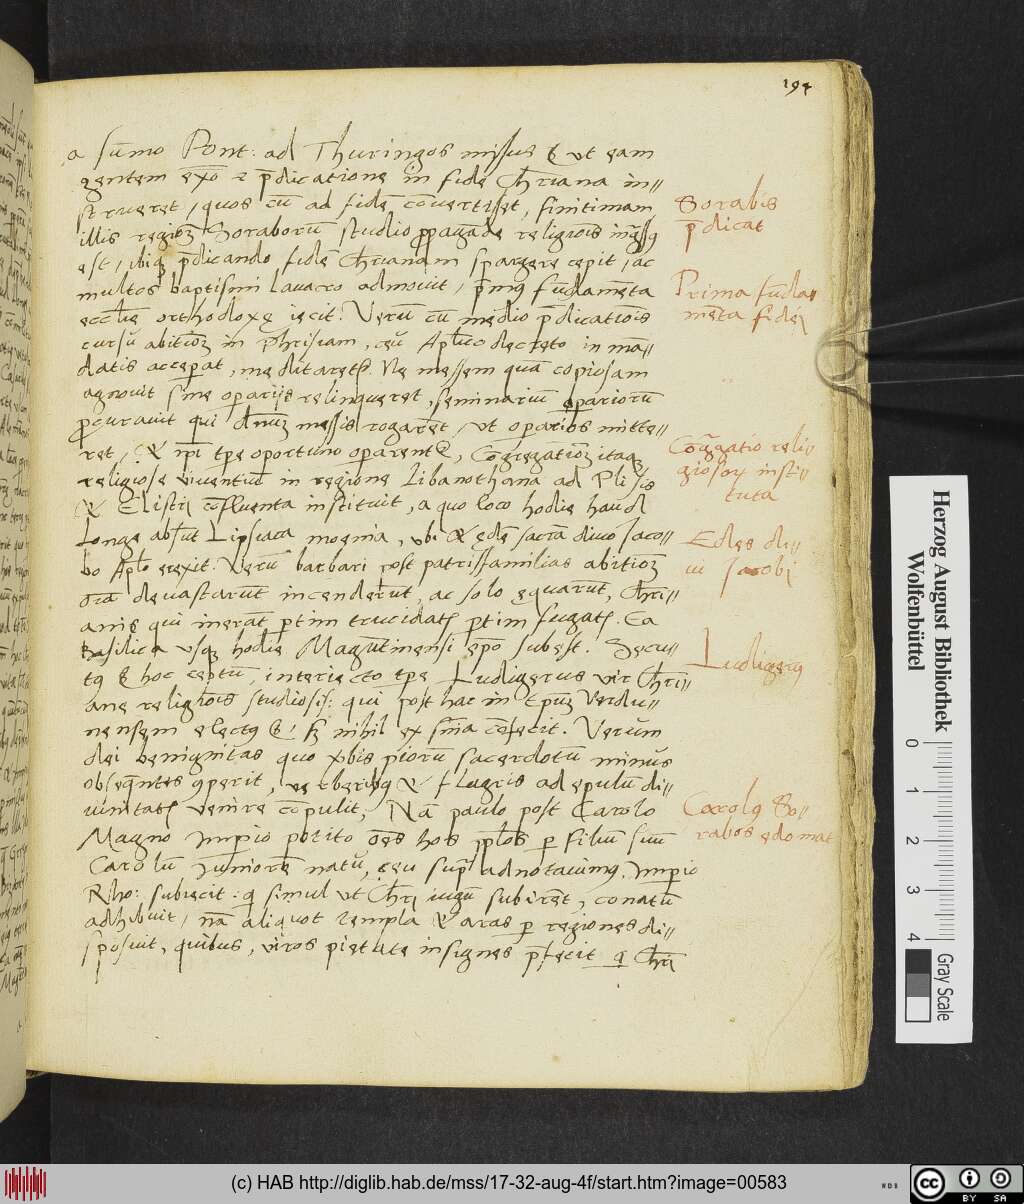 194
a sūmo Pont: ad Thuringos missus & ut eam
gentem exō 2 p̄dicatione in fidē Chr̄iana in⸗
strueret, quos cū ad fidē cōvertisset, finitimam
illis regionē Soraborū studio propagādę religiois ingressꝰ
est, ibiqꝫ p̄dicando fidē Chr̄ianam spargere cepit, ac
multos baptismi lavacro admovit, p̄imꝰ fūdamēta
ecclīę orthodoxę iecit: Verū cū medio p̄dicatiois
cursu abitionē in Phrisiam, ceu Ap̄lico decreto in mā⸗
datis accepat, meditaretꝭ. Ne messem quā copiosam
agnovit sine operarijs relinqueret, seminariū operariorū
procuravit qui dn̄m messis rogarēt, ut operarios mitte⸗
ret, & ip̄i tpe oportuno oparent, Congregationē itaqꝫ
religiose viventiū in regione Libanothana ad Plissę
& Elistri confluenta instituit, a quo loco hodie haud
Longe absūt Lipsica moenia, ubi & ędē sacrā divo Jaco⸗
bo Aplo erexit. Verū barbari post patrisfamilias abitionē
oīa devastarūt incenderūt, ac solo ęquarūt, Chr̄i⸗
anis qui inerāt ptim trucidatꝭ ptim fugatꝭ. Ea
Basilica usqꝫ hodie Magūtinensi epo subest. Secu⸗
tꝰ & hoc ceptū, interiecto tpe Ludigerus vir Chr̄i⸗
anę religiois studiosis: qui post hac in Epūm Verdu⸗
nensem electꝰ &: sꝫ nihil ex snīa cōfecit. Verum
dei benignitas quo verbis piorū sacerdotū minus
obseqntes operit, verberibꝰ & flagris ad epulū di⸗
vinitatꝭ venire cōpulit, Nā paulo post Carolo
Magno Impio potito oēs hos pplos p filiū suū
Carolū Juniorē natū, ceu supra adnotavimꝰ, Impio
Rho: subiecit: q simul ut Chr̄i iugū subirēt, conatū
adhibuit, nā aliquot templa & aras p regiones di⸗
sposuit, quibus, viros pietate insignes p̄fecit q Chr̄i
Sorabis
p̄dicat
Prima fūda⸗
mēta fidei
Congregatio reli⸗
giosorū insti⸗
tuta
Edes di⸗
vi Jacobi
Ludigerꝰ
Carolꝰ So⸗
rabos edomat
Herzog August Bibliothek
Wolfenbüttel
0 1 2 3 4
Gray Scale
(c) HAB http://diglib.hab.de/mss/17-32-aug-4f/start.htm?image=00583
WDB
cc BY SA